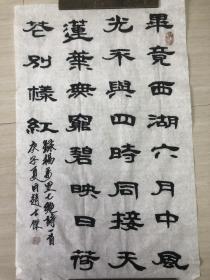 畢竟西湖六月中風
光不與四時同接天
蓮葉無窮碧映日荷
花別樣紅
錄楊萬里七絕詩一首
庚子夏月趙士傑